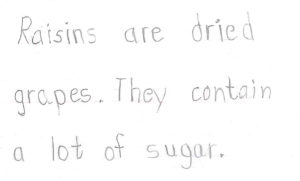 Raisins are dried
grapes. They contain
a lot of sugar.